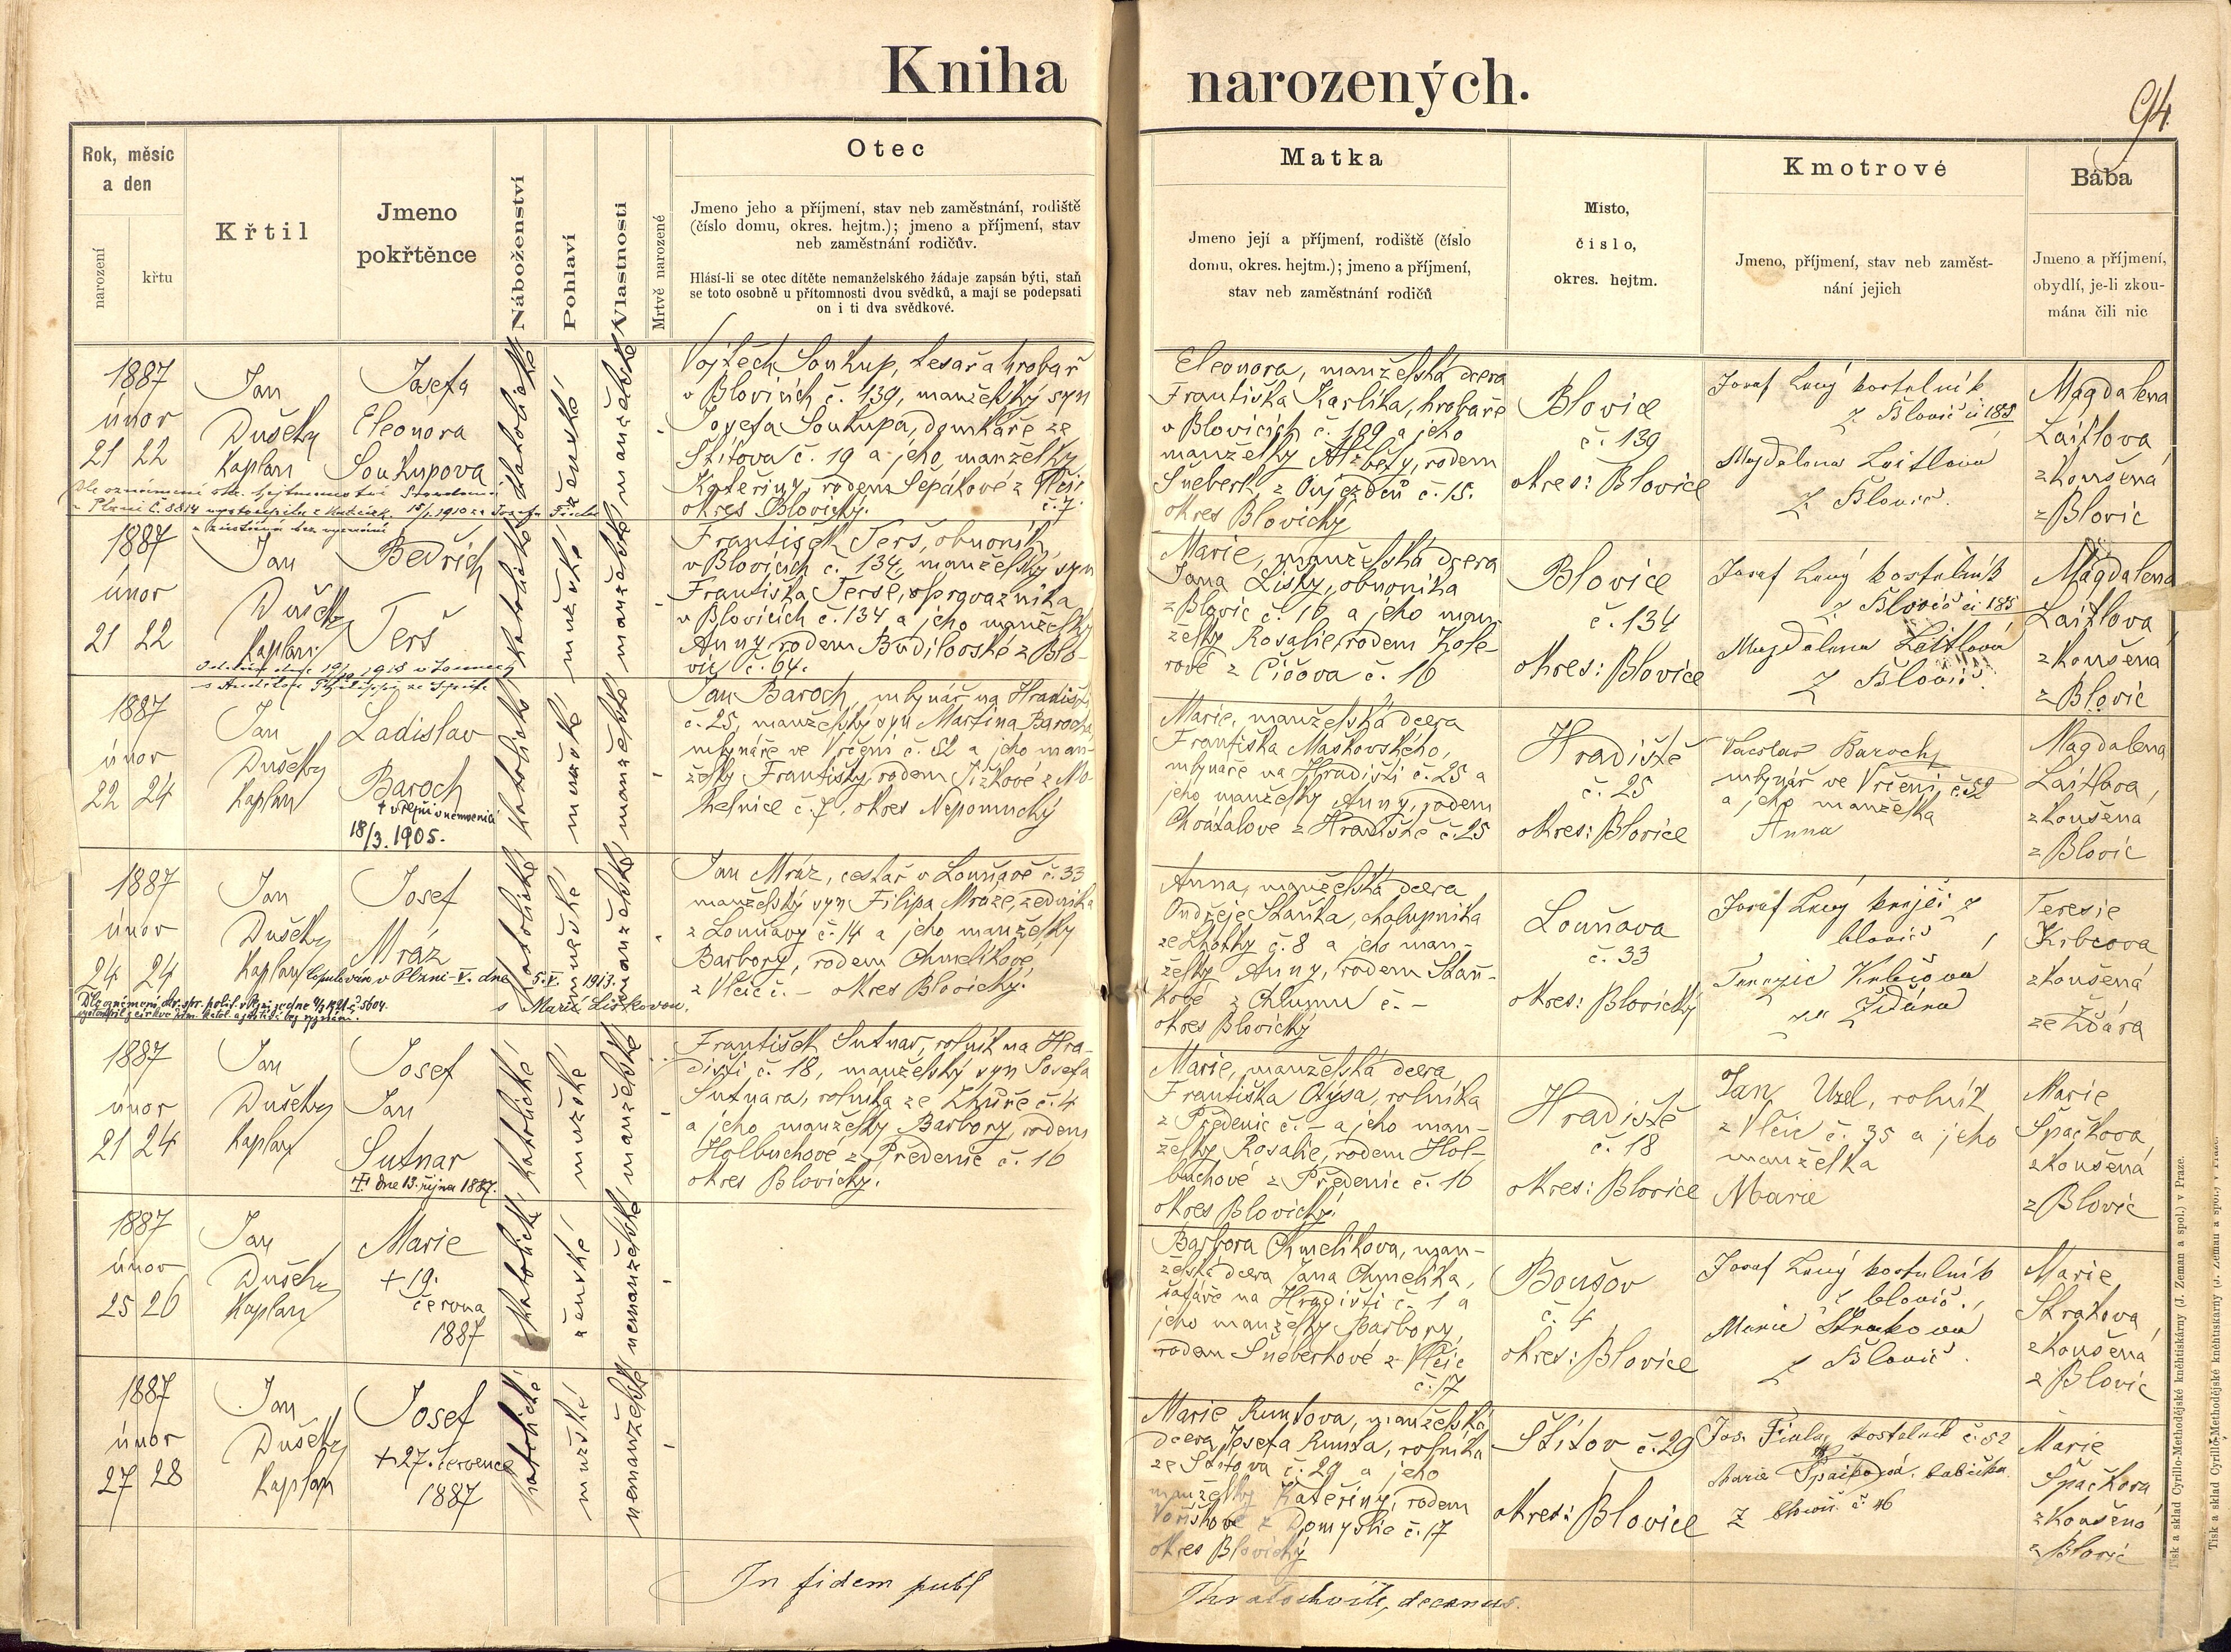 Kniha narozených.
94.
Rok, měsíc
a den
narození
křtu
Křtil
Jmeno
pokřtěnce
Náboženství
Pohlaví
Vlastnosti
Mrtvě narozené
Otec
Jmeno jeho a příjmení, stav neb zaměstnání, rodiště
(číslo domu, okres. hejtm.); jmeno a příjmení, stav
neb zaměstnání rodičův.
Hlásí-li se otec dítěte nemanželského žádaje zapsán býti, staň
se toto osobně u přítomnosti dvou svědků, a mají se podepsati
on i ti dva svědkové.
Matka
Jmeno její a příjmení, rodiště (číslo
domu, okres. hejtm.); jmeno a příjmení,
stav neb zaměstnání rodičů
Místo,
číslo,
okres. hejtm.
Kmotrové
Jmeno, příjmení, stav neb zaměst-
nání jejich
Bába
Jmeno a příjmení,
obydlí, je-li zkou-
mána čili nic
1887
únor
21 22
Jan
Dušek
Kaplan
Josefa
Eleonora
Soukupova
katolické
ženské
manželské
Vojtěch Soukup, tesař a hrobař
v Blovicích č. 139, manželský syn
Josefa Soukupa, domkáře ze
Štítova č. 19 a jeho manželky
Kateřiny, rodem Sepákové z Vlčic
č. 7.
okres Blovický.
Eleonora, manželská dcera
Františka Karlíka, hrobaře
v Blovicích č. 189 a jeho
manželky Alžběty, rodem
Šneberk. z Oujezdců č. 15.
okres Blovický
Blovice
č. 139
okres: Blovice
Josef Lavý kostelník
z Blovic č 185
Magdalena Laitlova
z Blovic.
Magdalena
Laitlova
zkoušená
z Blovic
1887
únor
21 22
Jan
Dušek
Kaplan
Bedřich
Terš
katolické
mužské
manželské
František Terš, obuvník
v Blovicích č. 134, manželský syn
Františka Terše,
v Blovicích č. 134 a jeho manželky
Anny, rodem Budilovské z Blo-
vic č. 64.
Marie, manželská dcera
Jana Lišky, obuvníka
z Blovic č. 16 a jeho man-
želky Rosalie, rodem Kole-
rové z Čičova č. 16
Blovice
č. 134
okres: Blovice
Josef Lavý kostelník
z Blovic č 185
Magdalena Laitlova
z Blovic.
Magdalena
Laitlova
zkoušená
z Blovic
1887
únor
22 24
Jan
Dušek
Kaplan
Ladislav
Baroch
† v Plzni v nemocnici
18/3. 1905.
katolické
mužské
manželské
Jan Baroch, mlynář na Hradišti
č. 25, manželský syn Martina Barocha,
mlynáře ve Vrčeni č. 52 a jeho man-
želky Františky, rodem Jizkové z Mo-
helnice č. 7. okres Nepomucký
Marie, manželská dcera
Františka Maškovského,
mlynáře na Hradišti č. 25 a
jeho manželky Anny, rodem
Chrátalové z Hradiště č. 25
Hradiště
č. 25
okres: Blovice
Václav Baroch
mlynář ve Vrčeni, č. 52
a jeho manželka
Anna
Magdalena
Laitlova,
zkoušená
z Blovic
1887
únor
24 24
Jan
Dušek
Kaplan
Josef
Mráz
Copulován v Plzni-V. dne 5. V. 1913.
s Marií Liškovou.
katolické
mužské
manželské
Jan Mráz, cestář v Louňavě č. 33
manželský syn Filipa Mráze, zedníka
z Louňavy č. 14 a jeho manželky
Barbory, rodem Chmelíkové
z Vlčic č. – okres Blovický.
Anna, manželská dcera
Ondřeje Staňka, chalupníka
ze Lhotky č. 8 a jeho man-
želky Anny, rodem Staň-
kové z Chlumu č. –
okres Blovický
Louňava
č. 33
okres: Blovický
Josef Lavý krejčí z
Blovic
Terezie Krbcova
ze Ždára
Teresie
Krbcova
zkoušená
ze Ždára
1887
únor
21 24
Jan
Dušek
Kaplan
Josef
Jan
Sutnar
† dne 13. října 1887.
katolické
mužské
manželské
František Sutnar, rolník na Hra-
dišti č. 18, manželský syn Josefa
Sutnara, rolníka ze Zhůře č. 4
a jeho manželky Barbory, rodem
Holbuchové z Předenic č. 16
okres Blovický.
Marie, manželská dcera
Františka Quýsa, rolníka
z Předenic č. – a jeho man-
želky Rosalie, rodem Hol-
buchové z Předenic č. 16
okres Blovický.
Hradiště
č. 18
okres: Blovice
Jan Uzel, rolník
z Vlčic č. 35 a jeho
manželka
Marie
Marie
Špačkova
zkoušená
z Blovic
1887
únor
25 26
Jan
Dušek
Kaplan
Marie
† 19.
června
1887
katolické
ženské
nemanželské
Barbora Chmelíkova, man-
želská dcera Jana Chmelíka,
šafáře na Hradišti č. 1 a
jeho manželky Barbory,
rodem Šneberkové z Vlčic
č. 17
Boušov
č. 4
okres: Blovice
Josef Lavý kostelník
z Blovic.
Marie Strakova
z Blovic.
Marie
Strakova
zkoušená
z Blovic
1887
únor
27 28
Jan
Dušek
Kaplan
Josef
† 27. července
1887
katolické
mužské
nemanželské
Marie Runtova, manželská
dcera Josefa Runta, rolníka
ze Štítova č. 29 a jeho
manželky Kateřiny, rodem
Voříškové z Domyslic č. 17
okres Blovický
Štítov č. 29
okres: Blovice
Jos. Fiala, kostelník č. 52
Marie Špačková, babička
z Blovic č. 46
Marie
Špačkova
zkoušená
z Blovic
In fidem publ
decanus.
Tisk a sklad Cyrillo-Methodějské kněhtiskárny (J. Zeman a spol.) v Praze.